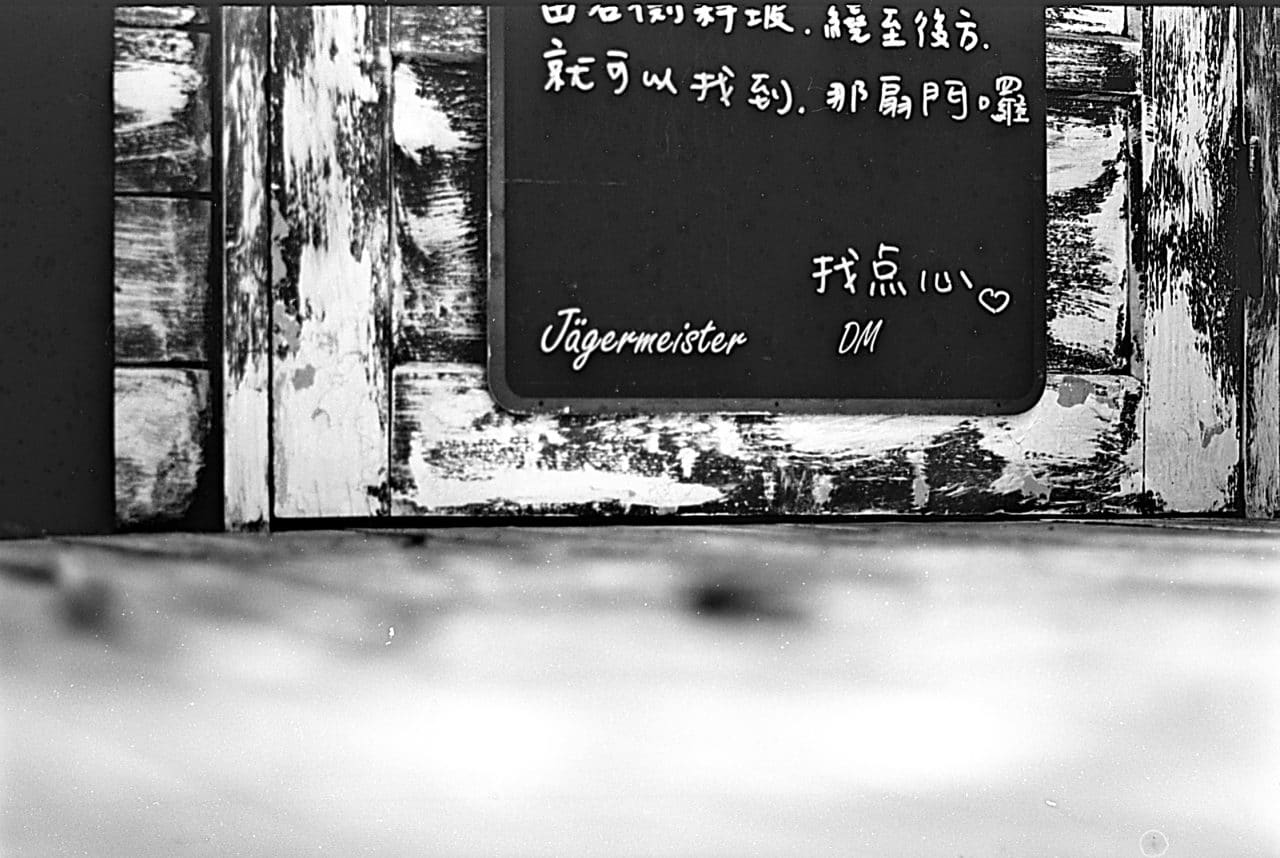 由右側斜坡.繞至後方.
就可以找到.那扇門囉
找点心♡
Jägermeister DM